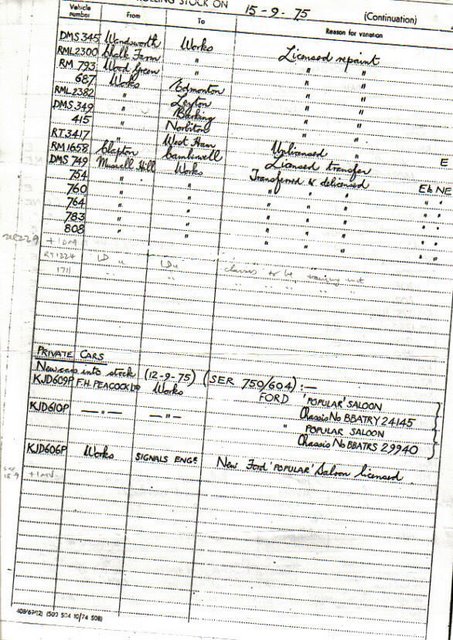 ROLLING STOCK ON 15-9-75 (Continuation)
Vehicle number From To Reason for variation
DMS 345 Wandsworth Works Licensed repaint
RML2300 Chalk Farm " " "
RM 793 Wood Green " " "
687 Works Edmonton " "
RML2382 " Leyton " "
DMS.349 " Barking " "
415 " Norbiton " "
RT.3417 " West Ham Unlicensed "
RM1658 Clapton Camberwell Licensed transfer E
DMS 749 Muswell Hill Works Transferred & delicensed E to NE
754 " " " " " "
760 " " " " " "
764 " " " " " "
783 " " " " " "
808 " " " " " "
PRIVATE CARS
New cars into stock (12-9-75) (SER 750/604) :—
KJD609P F.H. PEACOCK LTD Works FORD 'POPULAR' SALOON
Chassis No BBATRY 24145
KJD610P — " — — " — " POPULAR SALOON
Chassis No BBATRS 29940
KJD606P Works SIGNALS ENGR. New Ford 'POPULAR' Saloon licensed